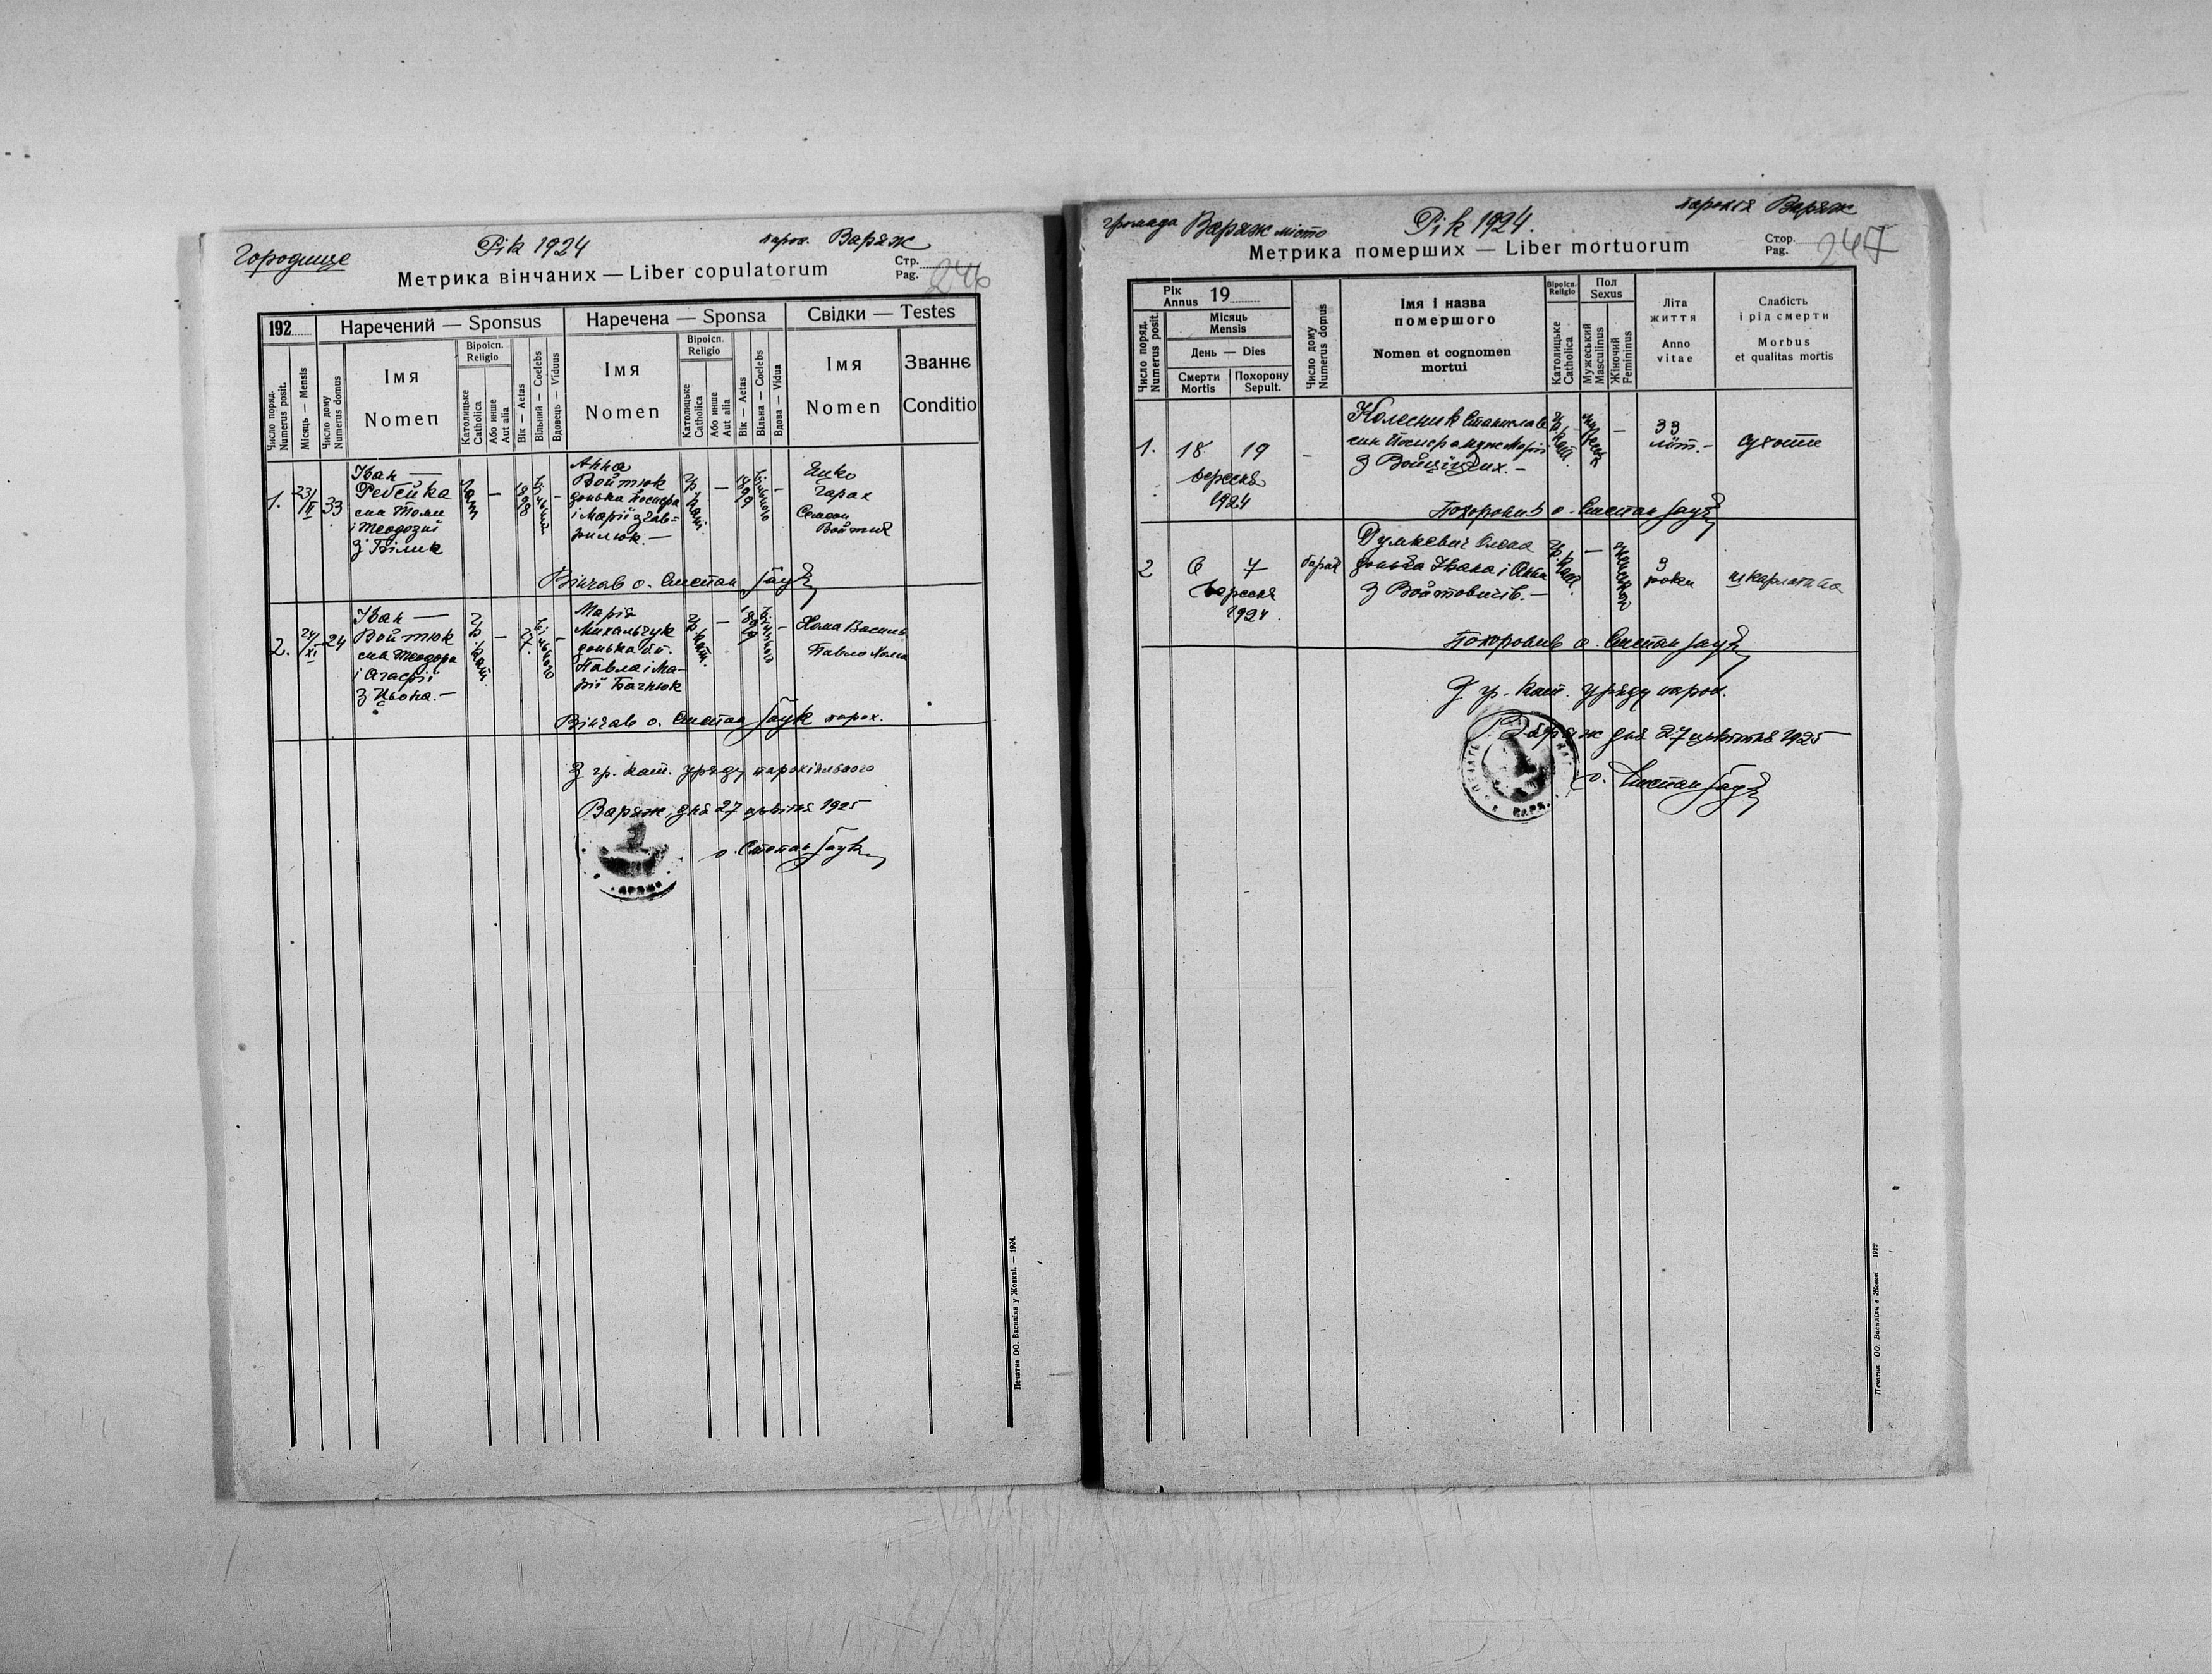 Городище
Рік 1924
парох. Варяж
Метрика вінчаних — Liber copulatorum
Стр.
Pag. 246
192
Наречений — Sponsus
Наречена — Sponsa
Свідки — Testes
Число поряд.
Numerus posit.
Місяць — Mensis
Число дому
Numerus domus
Імя
Nomen
Віроісп.
Religio
Католицьке
Catholica
Або инше
Aut alia
Вік — Aetas
Вільний — Coelebs
Вдовець — Viduus
Імя
Nomen
Віроісп.
Religio
Католицьке
Catholica
Або инше
Aut alia
Вік — Aetas
Вільна — Coelebs
Вдова — Vidua
Імя
Nomen
Званнє
Conditio
1.
23/II
33
Іван —
Ребейка
син Томи
і Теодозиї
з Білик
—
1898
—
Анна
Войтюк
донька Йосифа
і Марії з Гав=
рилюк. —
гр. кат.
—
1899
вільного
—
Гарах
Семен
Войтюк
Вінчав о. Степан Гаук
2.
24/XI
24
Іван —
Войтюк
син Теодора
і Агафії
з Цьона. —
гр. кат.
—
вільного
—
Марія
Михальчук
донька бл.
Павла і Ма-
рії Бачнюк
гр. кат.
—
1899
вільного
—
Хома Василь
Павло Хома
Вінчав о. Степан Гаук парох.
З гр. кат. уряду парохіяльного
Варяж, дня 27 цвітня 1925
о. Степан Гаук
Печатня ОО. Василіян у Жовкві. — 1924.
громада Варяж місто
Рік 1924.
парохія Варяж
Метрика померших — Liber mortuorum
Стор.
Pag. 247
Число поряд.
Numerus posit.
Рік
Annus 19
Місяць
Mensis
День — Dies
Смерти
Mortis
Похорону
Sepult.
Число дому
Numerus domus
Імя і назва
помершого
Nomen et cognomen
mortui
Віроісп.
Religio
Католицьке
Catholica
Пол
Sexus
Мужеський
Masculinus
Жіночий
Femininus
Літа
життя
Anno
vitae
Слабість
і рід смерти
Morbus
et qualitas mortis
1.
18
19
вересня
1924
–
Колесник Станислав
син Йосифа муж Марії
гр. кат.
—
33
літ. –
сухоти
Похоронив о. Степан Гаук
2
6
7
вересня
1924.
барак
Думкевич Олена
донька Івана і Анни
з Войтовичів. —
гр. кат.
—
3
роки
шкарлатина
Похоронив о. Степан Гаук
З гр. кат. уряду парох.
Варяж дня 27 цвітня 1925
о. Степан Гаук
Печатня ОО. Василіян в Жовкві — 1922